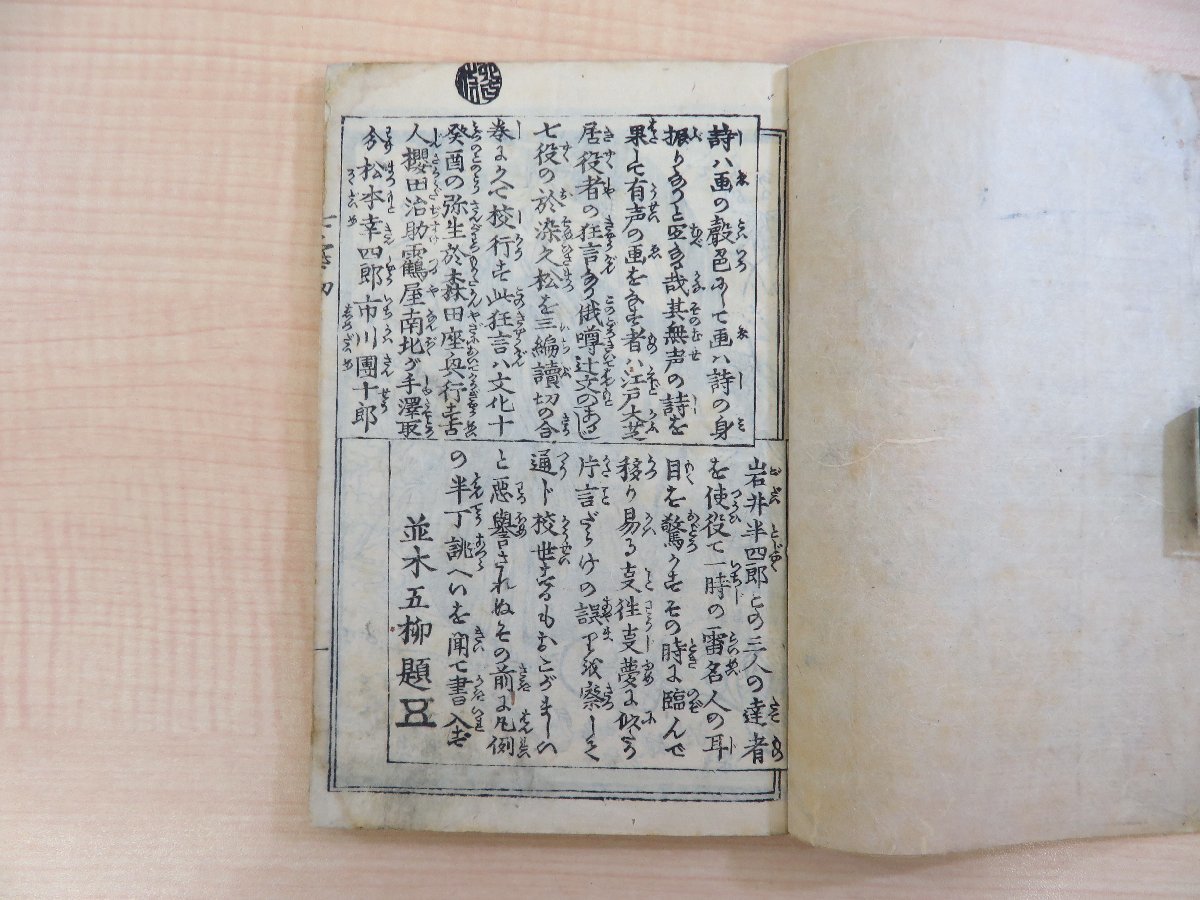 詩ハ画の聲色にして画ハ詩の身
振りなりと宜なる哉其無声の詩を
果して有声の画をなす者ハ江戸大芝
居役者の狂言なり俄噂辻文のあるじ
七役の於染久松を三編讀切の合
巻にかへて校行す此狂言ハ文化十
癸酉の弥生於森田座興行す古
人櫻田治助靏屋南北が手澤取
分松本幸四郎市川團十郎
岩井半四郎との三人の達者
を使役て一時の雷名人の耳
目を驚かすその時に臨んで
移り易る支往支夢に似たり
片言だらけの誤りを察して
通じ校世するもおこがましい
と悪誉されぬその前に凡例
の半丁誂へいを聞て書入す
並木五柳題